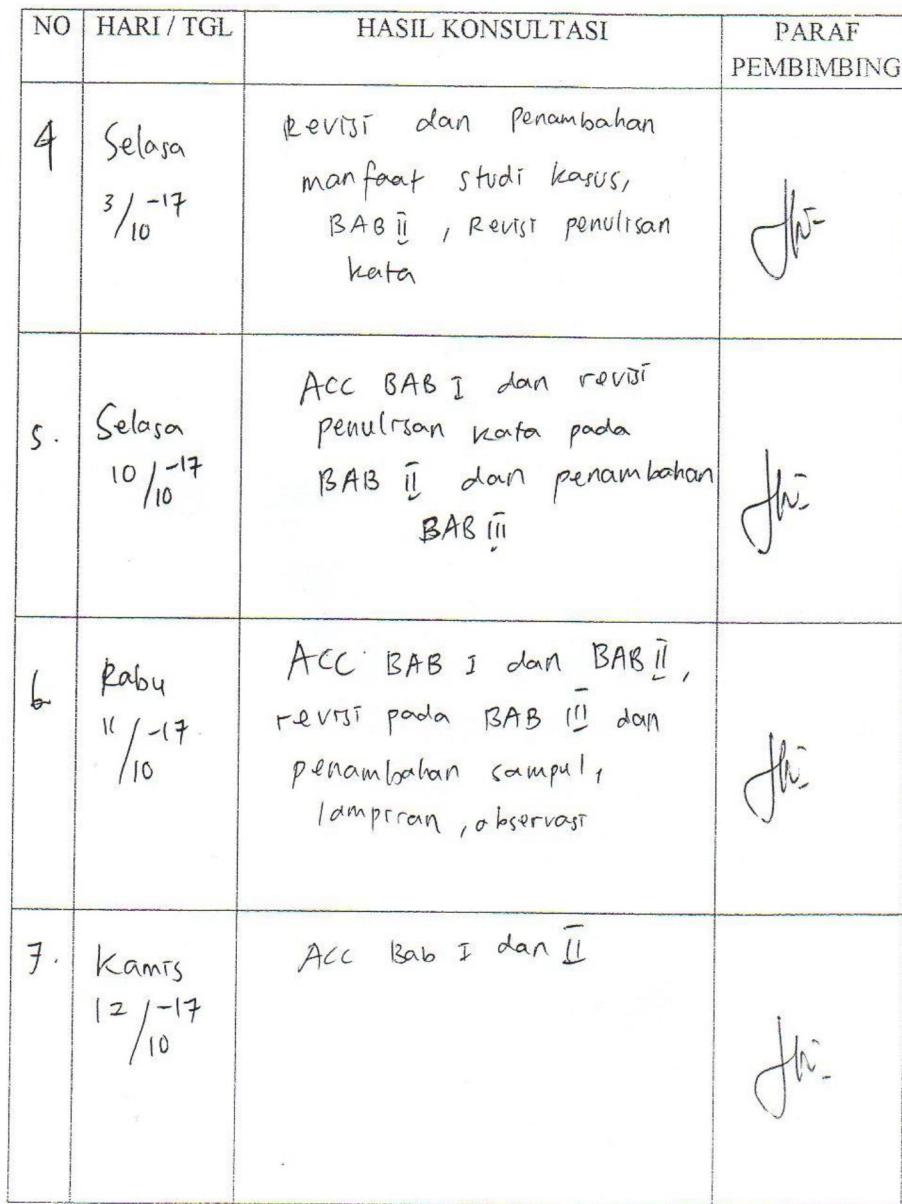 NO HARI / TGL HASIL KONSULTASI PARAF
PEMBIMBING
4 Selasa Revisi dan Penambahan
3/10-17 manfaat studi kasus,
BAB II, Revisi penulisan
kata
5. Selasa ACC BAB I dan revisi
10/10-17 penulisan kata pada
BAB II dan penambahan
BAB III
6 Rabu ACC BAB I dan BAB II,
11/10-17. revisi pada BAB III dan
penambahan sampul,
lampiran, observasi
7. Kamis ACC Bab I dan II
12/10-17